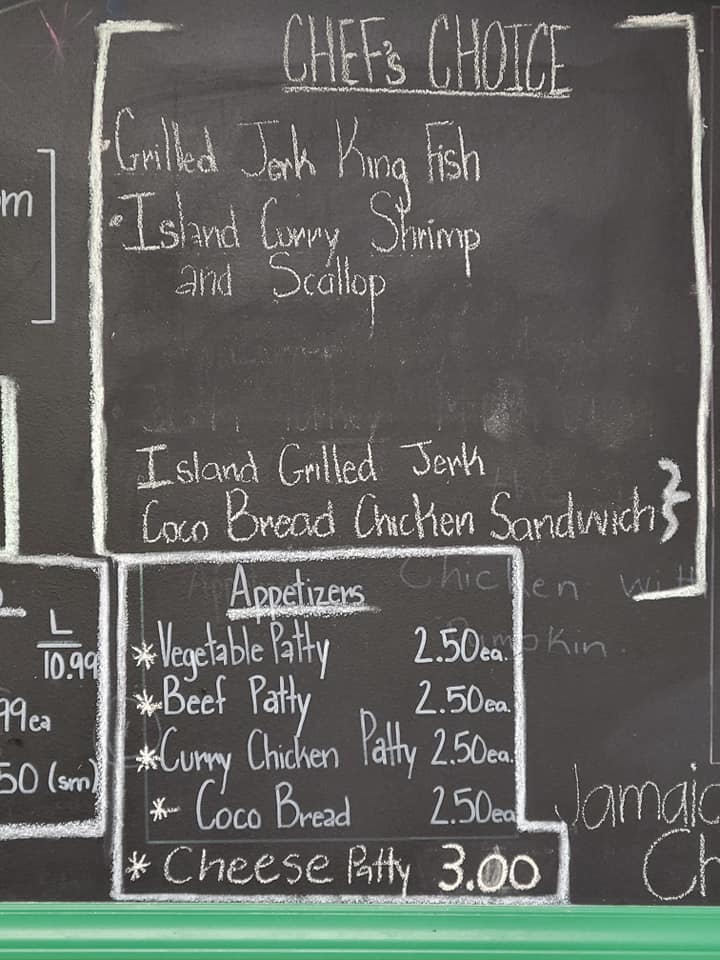 CHEF's CHOICE
• Grilled Jerk King Fish
• Island Curry Shrimp
and Scallop
Island Grilled Jerk
Coco Bread Chicken Sandwich
Chicken with
Pumpkin.
Appetizers
* Vegetable Patty 2.50ea.
* Beef Patty 2.50ea.
* Curry Chicken Patty 2.50ea.
* Coco Bread 2.50ea
* Cheese Patty 3.00
m
L
10.99
99ea
50 (sm)
Jamaic
Ch